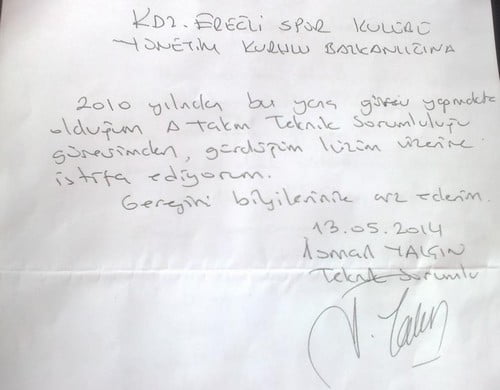 KDZ. EREĞLİ SPOR KULÜBÜ
YÖNETİM KURULU BAŞKANLIĞINA
2010 yılından bu yana görev yapmakta
olduğum A Takım Teknik Sorumluluğu
görevimden, gördüğüm lüzum üzerine
istifa ediyorum.
Gereğini bilgilerinize arz ederim.
13.05.2014
İsmail YALÇIN
Teknik Sorumlu